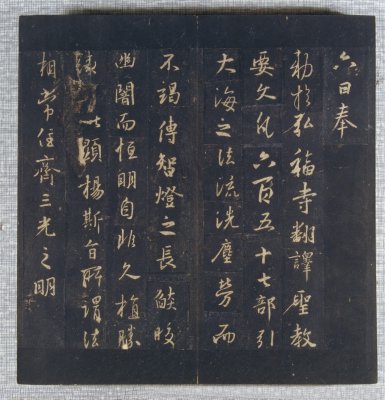 六日奉
勅於弘福寺翻譯聖教
要文凡六百五十七部引
大海之法流洗塵勞而
不竭傳智燈之長焰皎
幽闇而恒明自非久植勝
緣以顯揚斯旨所謂法
相常住齊三光之明